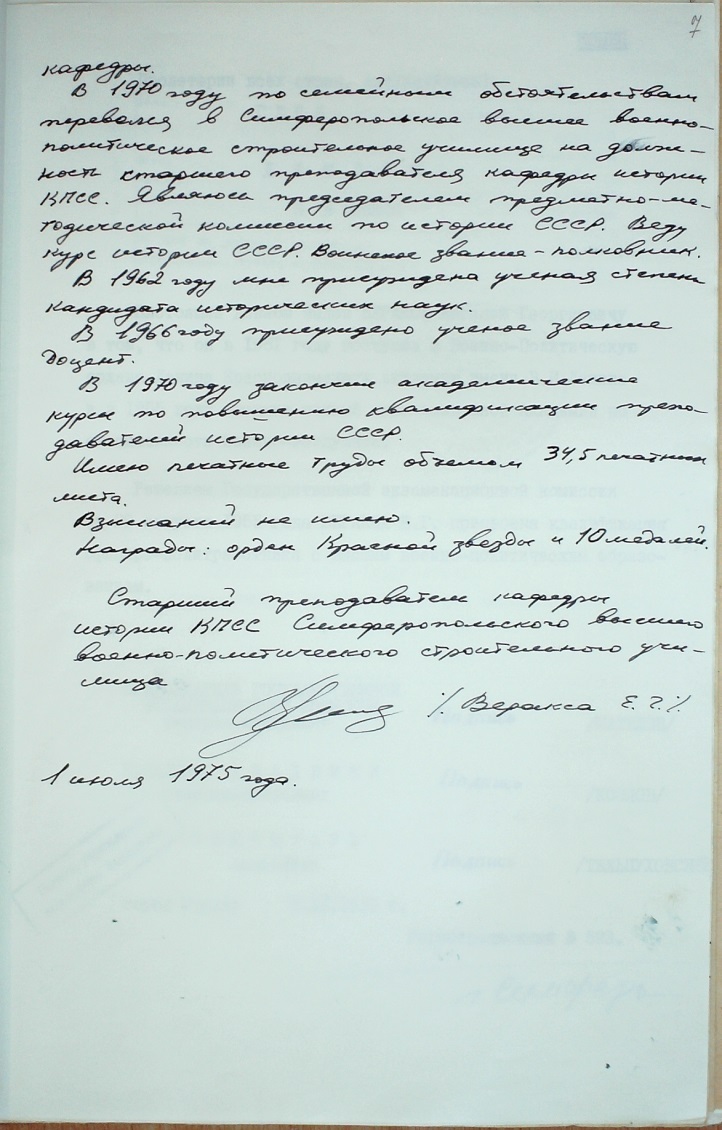 7
кафедры.
В 1970 году по семейным обстоятельствам
перевелся в Симферопольское высшее военно-
политическое строительное училище на долж-
ность старшего преподавателя кафедры истории
КПСС. Являюсь председателем предметно-ме-
тодической комиссии по истории СССР. Веду
курс истории СССР. Воинское звание - полковник.
В 1962 году мне присуждена ученая степень
кандидата исторических наук.
В 1966 году присуждено ученое звание
доцент.
В 1970 году закончил академические
курсы по повышению квалификации препо-
давателей истории СССР.
Имею печатные труды объемом 34,5 печатных
листа.
Взысканий не имею.
Награды: орден Красной звезды и 10 медалей.
Старший преподаватель кафедры
истории КПСС Симферопольского высшего
военно-политического строительного учи-
лища
/ Веракса Е. Г. /
1 июля 1975 года.